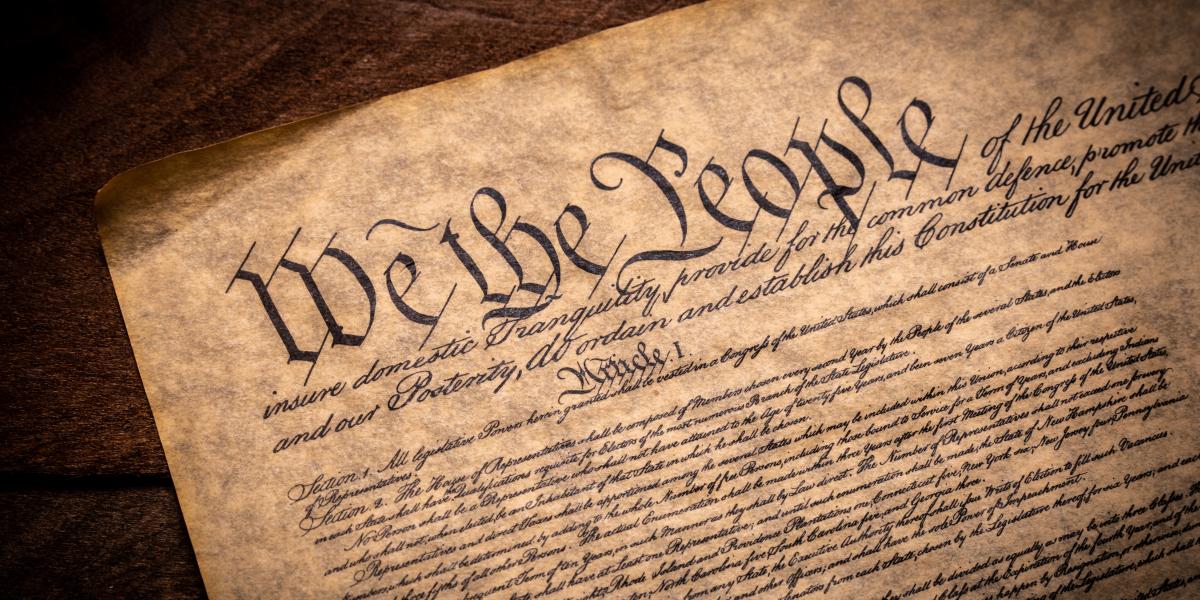 We the People of the United
insure domestic Tranquility, provide for the common defence, promote
and our Posterity, do ordain and establish this Constitution for the
Article I.
Section 1. All legislative Powers herein granted shall be vested in a Congress of the United States, which shall consist of a Senate and House
Representatives.
Section 2. The House of Representatives shall be composed of Members chosen every second Year by the People of the several States, and the Electors
in each State shall have Qualifications requisite for Electors of the most numerous Branch of the State Legislature.
No Person shall be a Representative who shall not have attained to the Age of twenty five Years, and been seven Years a Citizen of the United States,
and who shall not, when elected, be an Inhabitant of that State in which he shall be chosen.
Representatives and direct Taxes shall be apportioned among the several States which may be included within this Union, according to their respective
which shall be determined by adding to the whole Number of free Persons, including those bound to Service for a Term of Years, and excluding Indians
of all other Persons. The actual Enumeration shall be made within three Years after the first Meeting of the Congress of the United States,
Term of ten Years, in such Manner as they shall by Law direct. The Number of Representatives shall not exceed one for every
shall have at Least one Representative; and until such enumeration shall be made, the State of New Hampshire shall be
Rhode Island and Providence Plantations one, Connecticut five, New York six, New Jersey four, Pennsylvania
North Carolina five, South Carolina five, and Georgia three.
from any State, the Executive Authority thereof shall issue Writs of Election to fill such Vacancies.
other officers; and shall have the sole Power of Impeachment.
from each State, chosen by the Legislature thereof, for six Years; and
shall be divided as equally as may be into three
at the Expiration of the fourth Year,
happen by Resignation, or otherwise
of the Legislature, which